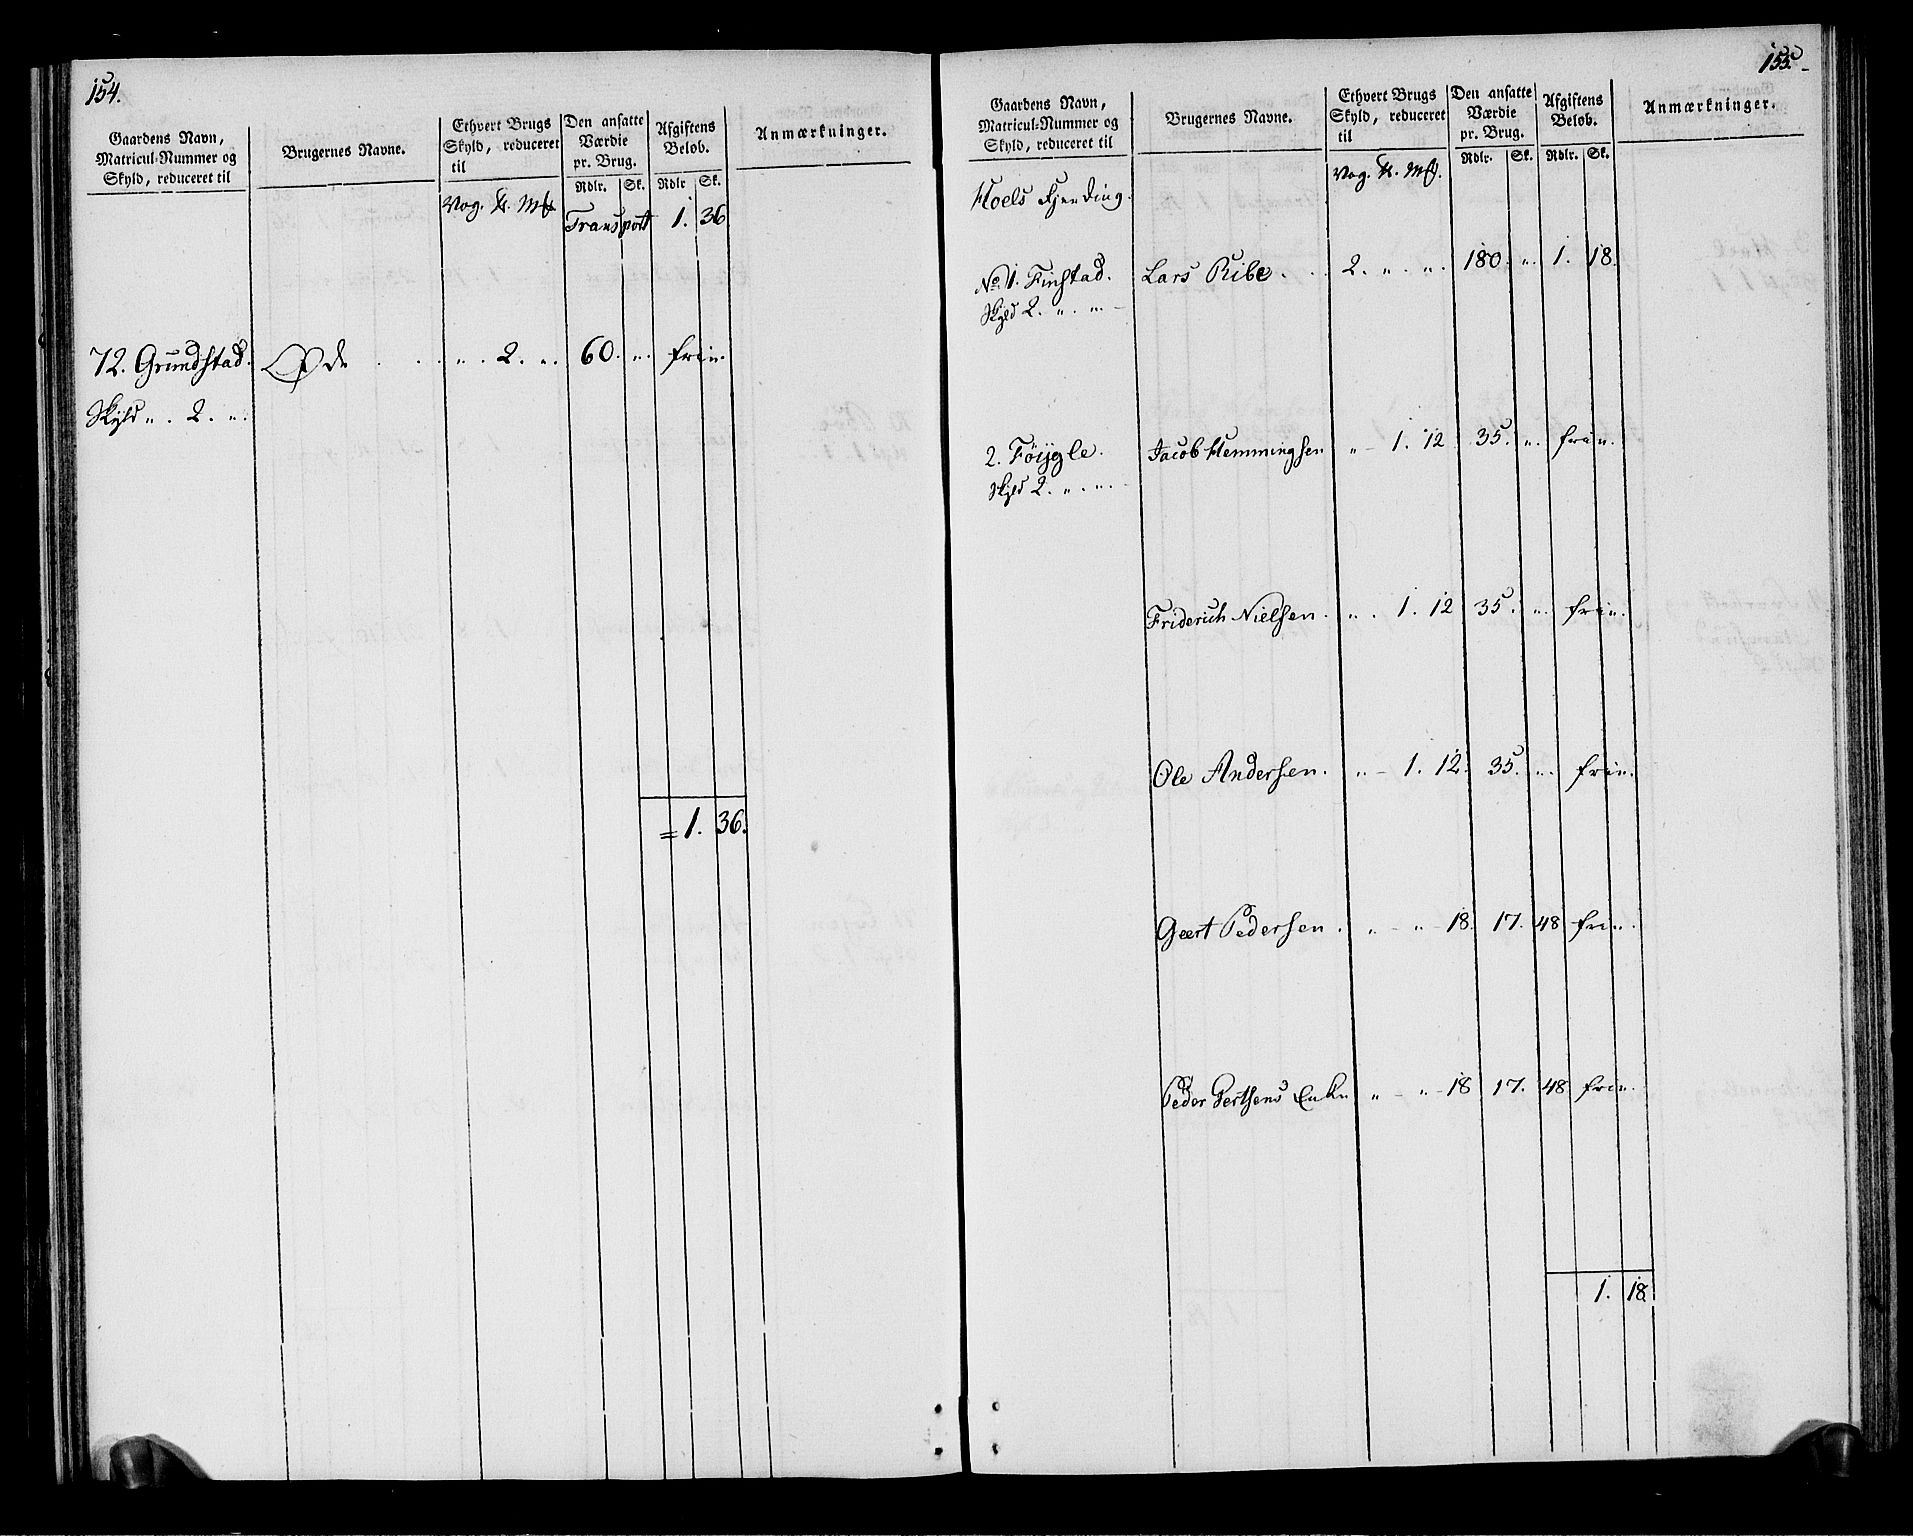 154.
Gaardens Navn,
Matricul-Nummer og
Skyld, reduceret til
Brugernes Navne.
Ethvert Brugs
Skyld, reduceret
til
Den ansatte
Værdie
pr. Brug.
Rdlr. Sk.
Afgiftens
Beløb.
Rdlr Sk.
Anmærkninger.
Vog.
Transport 1. 36
72. Grundstad. Øde . . „ . 2. „ . 60. „ . frie.
Skyld „ . 2. „ .
= 1. 36.
155.
Gaardens Navn,
Matricul-Nummer og
Skyld, reduceret til
Brugernes Navne.
Ethvert Brugs
Skyld, reduceret
til
Den ansatte
Værdie
pr. Brug.
Rdlr. Sk.
Afgiftens
Beløb.
Rdlr. Sk.
Anmærkninger.
Vog.
Hoels Fjerding.
No 1. Finstad. Lars Ribe . . 2. „ . „ . 180. „ . 1. 18.
Skyld 2. „ . „ . –
2. Føygle. Jacob Hemmingsen „ – 1. 12 35. „ . frie.
Skyld 2. „ . „ . –
Friderich Nielsen. „ . 1. 12 35. „ . frie.
Ole Andersen. „ – 1. 12. 35. „ . frie.
Geert Pedersen . „ – „ – 18. 17. 48 frie.
Peder Gertsens Enke „ – „ – 18 17. 48 frie.
1. 18.